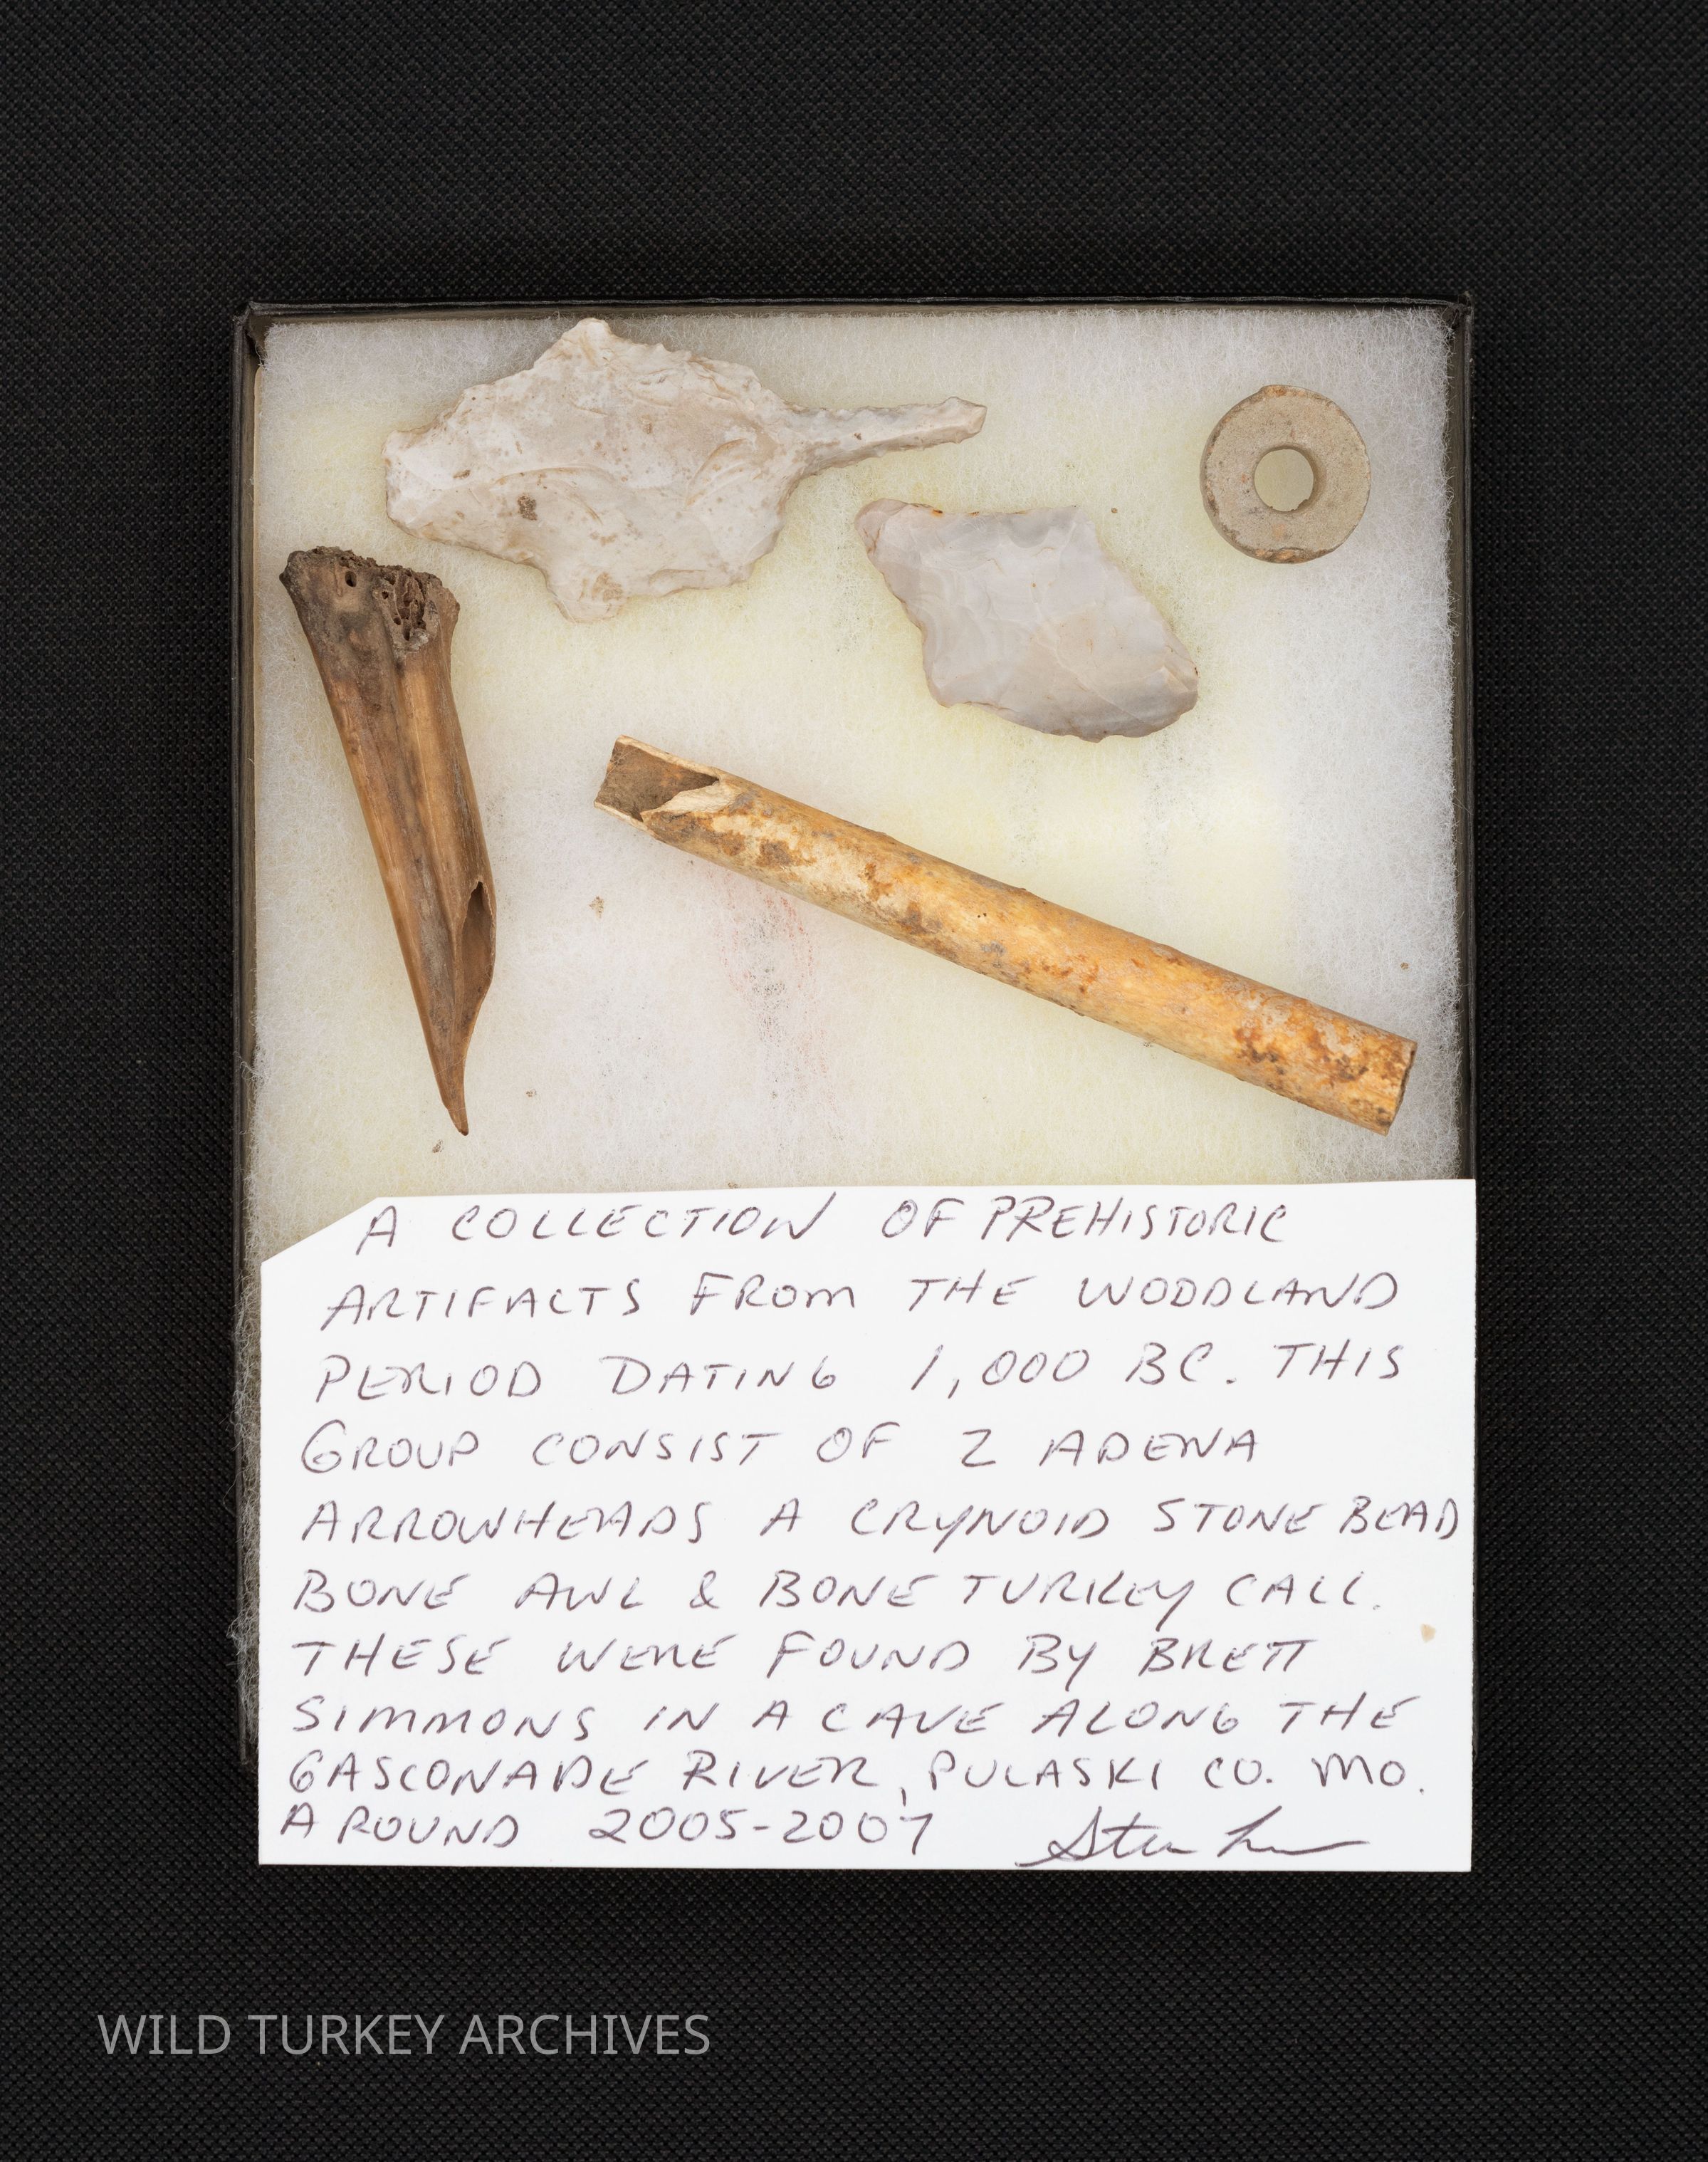 A COLLECTION OF PREHISTORIC
ARTIFACTS FROM THE WOODLAND
PERIOD DATING 1,000 BC. THIS
GROUP CONSIST OF 2 ADENA
ARROWHEADS A CRYNOID STONE BEAD
BONE AWL & BONE TURKEY CALL.
THESE WERE FOUND BY BRETT
SIMMONS IN A CAVE ALONG THE
GASCONADE RIVER, PULASKI CO. MO.
AROUND 2005-2007
WILD TURKEY ARCHIVES